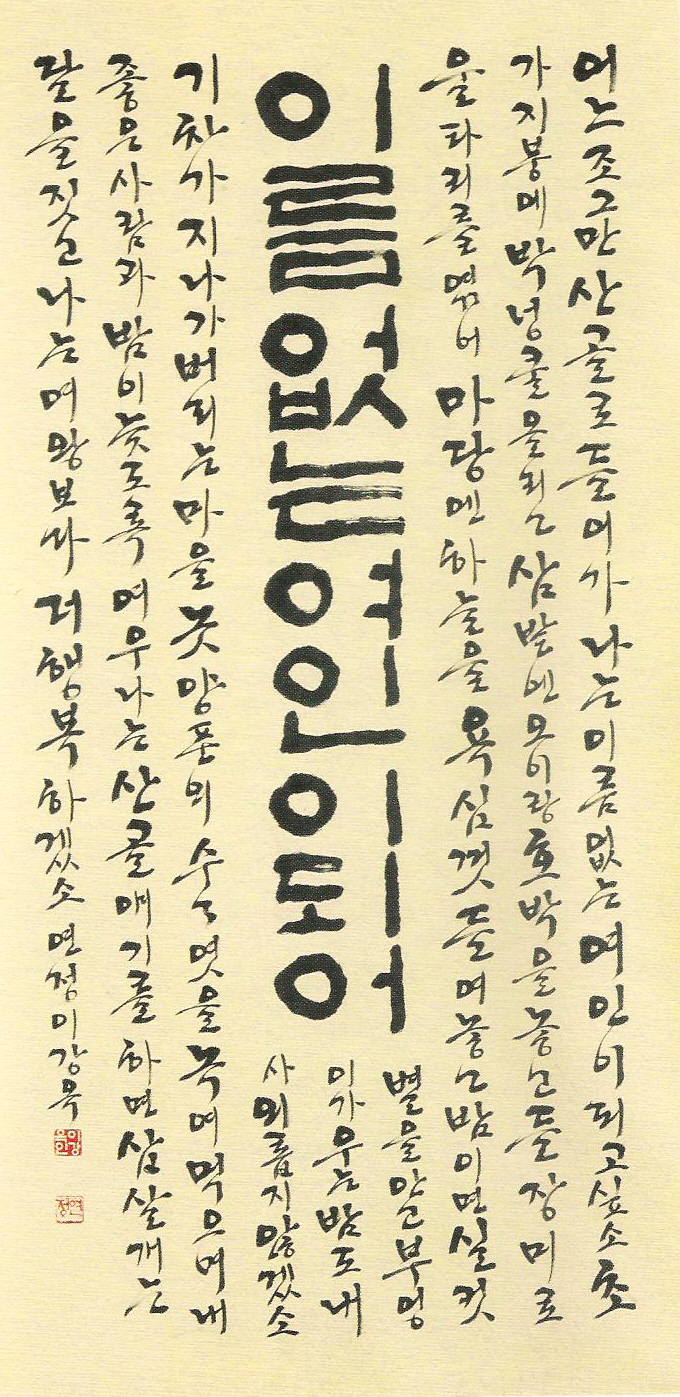 어느조그만산골로들어가나는이름없는여인이되고싶소초
가지붕에박넝쿨올리고삼밭엔오이랑호박을놓고들장미로
울타리를엮어마당엔하늘을욕심껏들여놓고밤이면실컷
별을안고부엉
이가우는밤도내
사외롭지않겠소
이름없는여인이되어
기차가지나가버리는마을놋양푼의수수엿을녹여먹으며내
좋은사람과밤이늦도록여우나는산골얘기를하면삽살개는
달을짖고나는여왕보다더행복하겠소연정이강옥